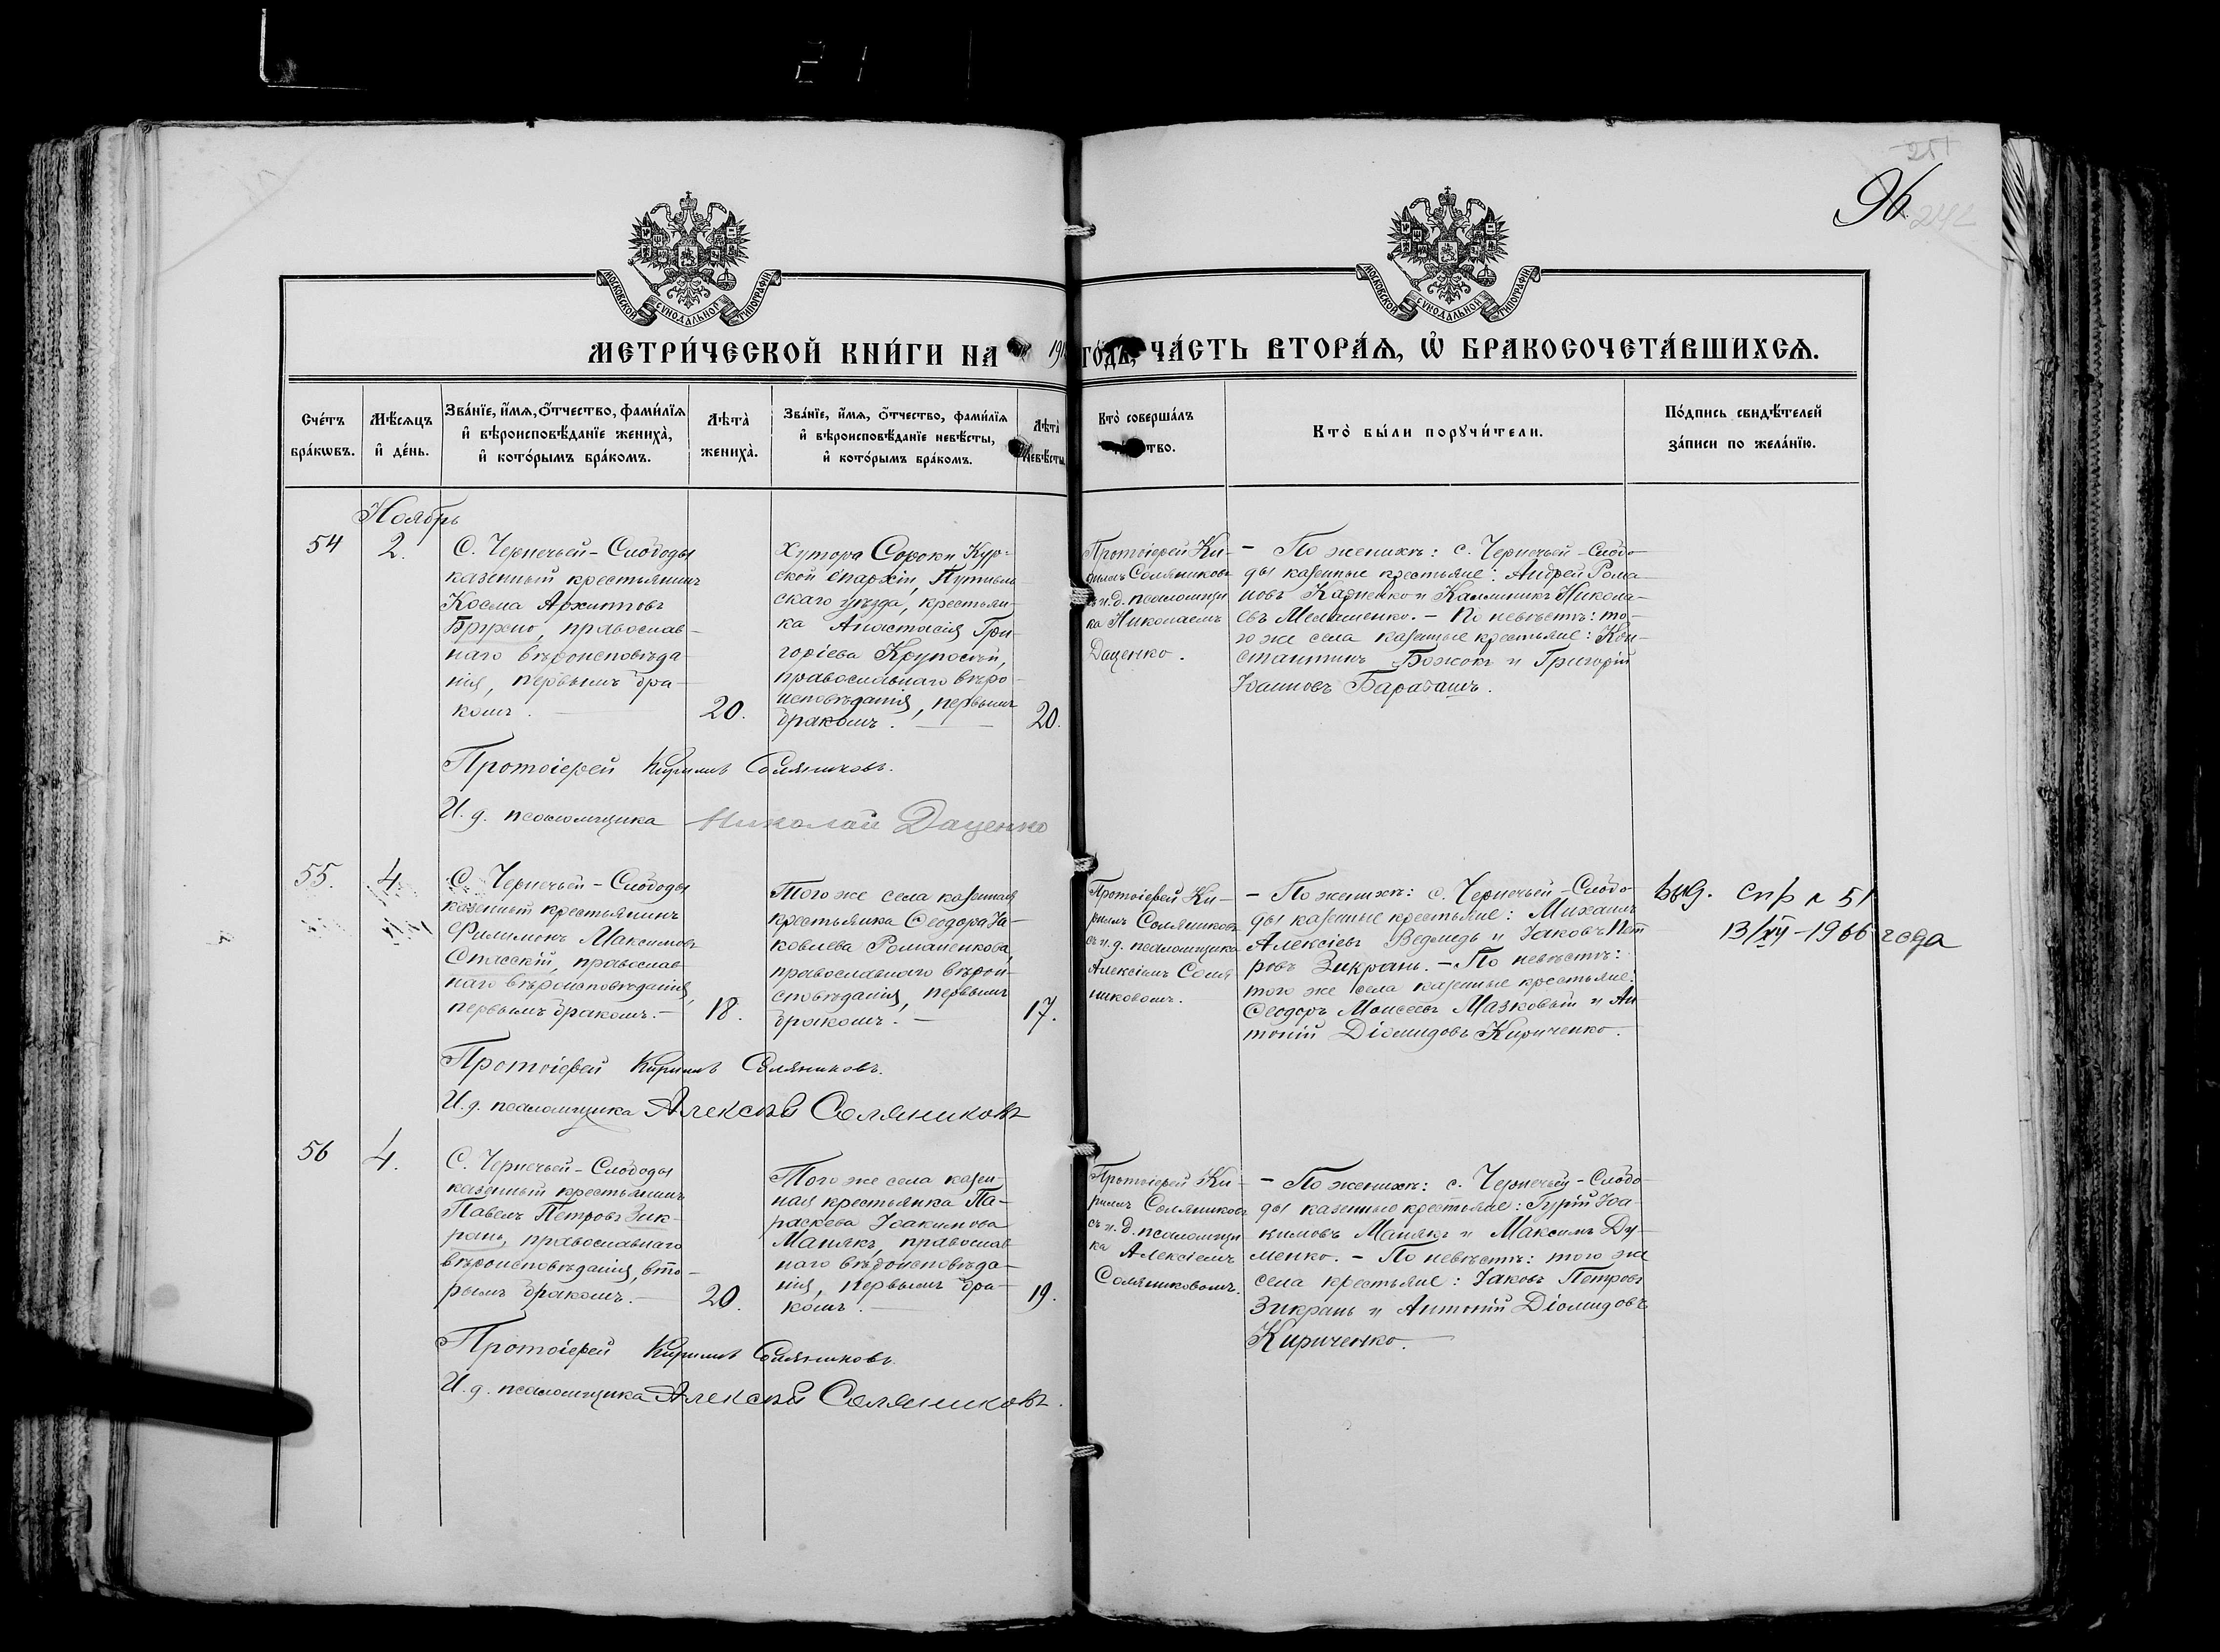 96.
МОСКОВСКОЙ СѴНОДАЛЬНОЙ ТИПОГРАФІИ
МОСКОВСКОЙ СѴНОДАЛЬНОЙ ТИПОГРАФІИ
МЕТРИ́ЧЕСКОЙ КНИ́ГИ НА 191 ГО́ДЪ, ЧА́СТЬ ВТОРА́Ѧ, Ѡ҆ БРАКОСОЧЕТА́ВШИХСѦ.
Сче́тъ
бра́кѡвъ.
Мѣ́сѧцъ
и҆ де́нь.
Зва́нїе, и҆́мѧ, ѻ҆́тчество, фами́лїѧ
и҆ вѣроисповѣ́данїе жениха̀,
и҆ кото́рымъ бра́комъ.
Лѣта̀
жениха̀.
Зва́нїе, и҆́мѧ, ѻ҆́тчество, фами́лїѧ
и҆ вѣроисповѣ́данїе невѣ́сты,
и҆ кото́рымъ бра́комъ.
Лѣта̀
невѣ́сты
Кто̀ соверша́лъ
тво.
Кто̀ бы́ли порꙋчи́тели.
По́дпись свидѣ́телей
за́писи по жела́нїю.
Ноябрь
54
2.
С. Чернечьей-Слободы
казенный крестьянинъ
Косма Архиповъ
Бружно, православ-
наго вѣроисповѣда-
нія, первымъ бра-
комъ.
20.
Хутора Сороки Кур-
ской епархіи, Путивль
скаго уѣзда, крестьян-
ка Анастасія Гри-
горіева
православнаго вѣро-
исповѣданія, первымъ
бракомъ.
20.
Протоіерей Ки-
риллъ Соляниковъ
съ и.д. псаломщи
ка Николаемъ
Даценко.
- По женихѣ: с. Чернечьей-Слобо-
ды казенные крестьяне: Андрей Рома-
новъ Карпенко и Каллиникъ Никола-
евъ Мелашенко. - По невѣстѣ: то-
го же села казенные крестьяне: Кон-
стантинъ Божокъ и Григорій
Іоанновъ Барабашъ.
Протоіерей Кириллъ Соляниковъ.
И. д. псаломщика Николай Даценко
55.
4.
С. Чернечьей-Слободы
казенный крестьянинъ
Филимонъ Максимовъ
Спасскій, православ-
наго вѣроисповѣданія,
первымъ бракомъ. -
18.
Того же села казенная
крестьянка Ѳеодора Іа-
ковлева Романенкова,
православнаго вѣрои-
сповѣданія, первымъ
бракомъ. -
17.
Протоіерей Ки-
риллъ Соляниковъ
съ и.д. псаломщика
Алексіемъ Соля
никовымъ.
- По женихѣ: с. Чернечьей-Слобо-
ды казенные крестьяне: Михаилъ
Алексіевъ Ведмедь и Іаковъ Пет
ровъ Зикрань. - По невѣстѣ:
того же села казенные крестьяне:
Ѳеодоръ Моисеевъ Мазковый и Ан
тоній Діомидовъ Кириченко.
Выд. спр № 51
13/XII-1966 года
Протоіерей Кириллъ Соляниковъ.
И. д. псаломщика Алексѣй Соляниковъ
56
4.
С. Чернечьей-Слободы
казенный крестьянинъ
Павелъ Петровъ Зик-
рань, православнаго
вѣроисповѣданія, вто-
рымъ бракомъ. -
20.
Того же села казен-
ная крестьянка Па-
раскева Іоакимова
Манякъ, православ
наго вѣроисповѣда-
нія, первымъ бра-
комъ. -
19.
Протоіерей Ки-
риллъ Соляниковъ
съ и.д. псаломщи
ка Алексіемъ
Соляниковымъ.
- По женихѣ: с. Чернечьей-Слобо
ды казенные крестьяне: Гурій Іоа-
кимовъ Манякъ и Максимъ Ду-
менко. - По невѣстѣ: того же
села крестьяне: Іаковъ Петровъ
Зикрань и Антоній Діомидовъ
Кириченко.
Протоіерей Кириллъ Соляниковъ.
И. д. псаломщика Алексѣй Соляниковъ.